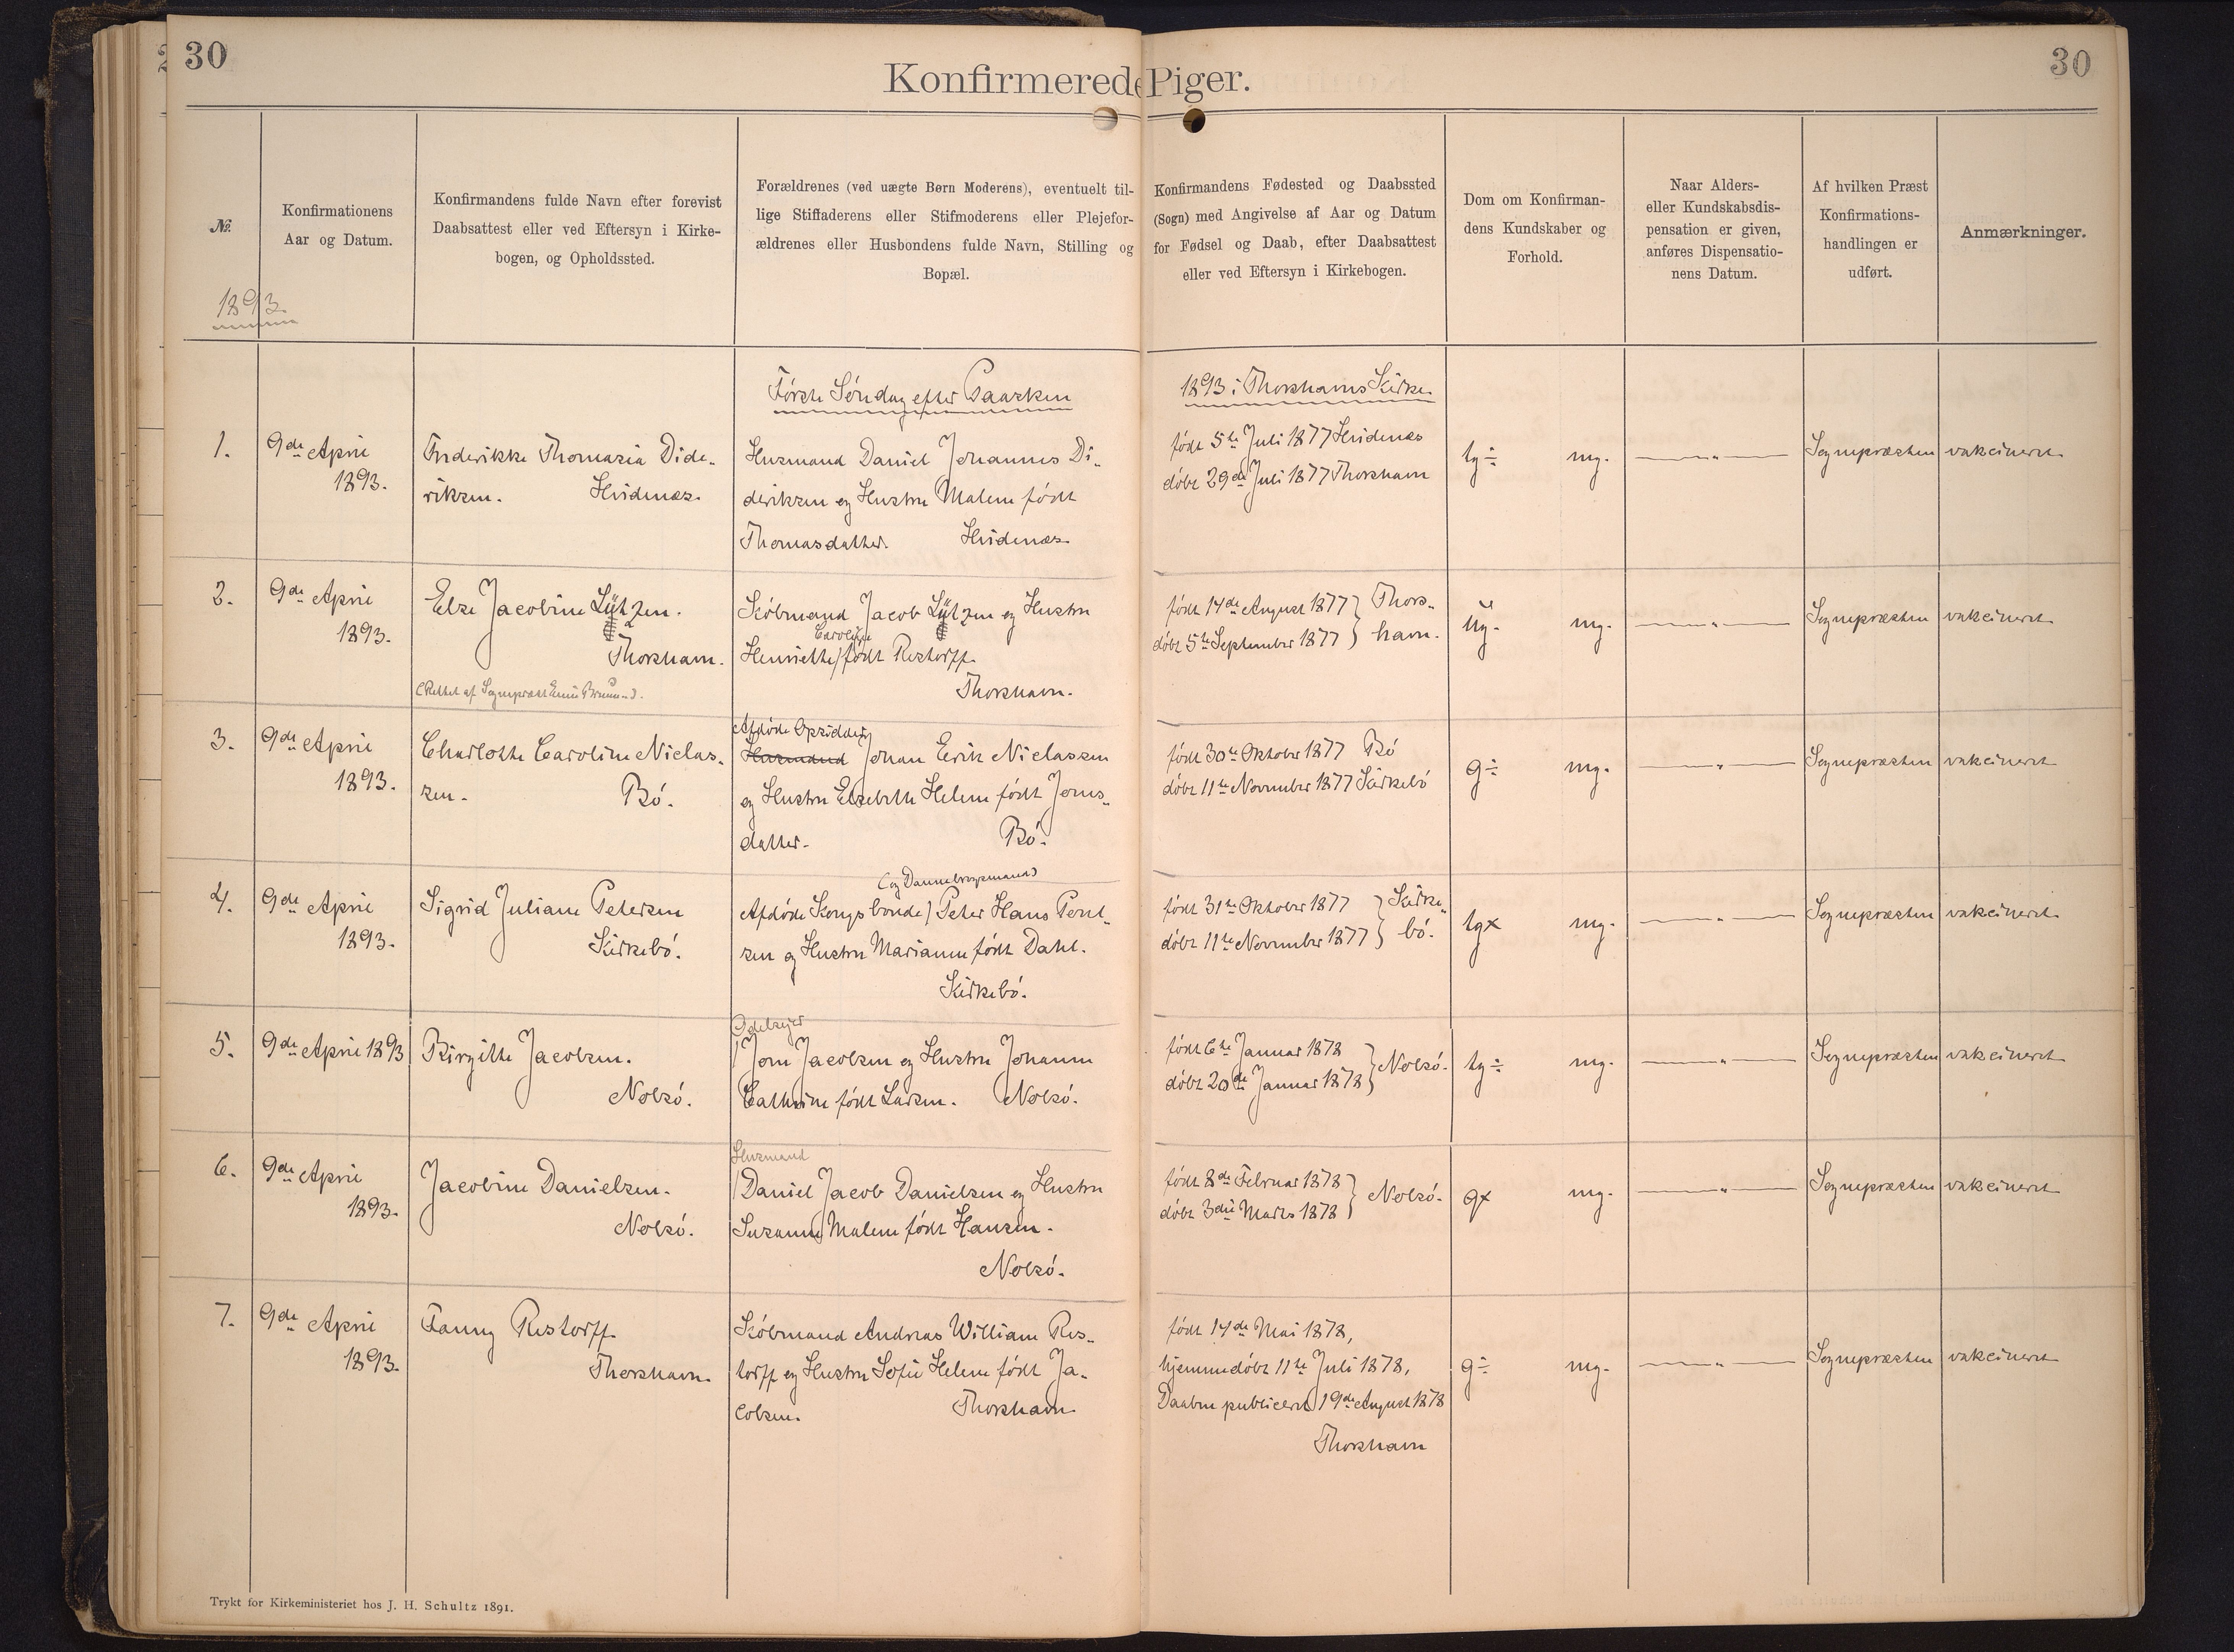 30
30
Konfirmerede Piger.
№.
Konfirmationens
Aar og Datum.
Konfirmandens fulde Navn efter forevist
Daabsattest eller ved Eftersyn i Kirke-
bogen, og Opholdssted.
Forældrenes (ved uægte Børn Moderens), eventuelt til-
lige Stiffaderens eller Stifmoderens eller Plejefor-
ældrenes eller Husbondens fulde Navn, Stilling og
Bopæl.
Konfirmandens Fødested og Daabssted
(Sogn) med Angivelse af Aar og Datum
for Fødsel og Daab, efter Daabsattest
eller ved Eftersyn i Kirkebogen.
Dom om Konfirman-
dens Kundskaber og
Forhold.
Naar Alders-
eller Kundskabsdis-
pensation er given,
anføres Dispensatio-
nens Datum.
Af hvilken Præst
Konfirmations-
handlingen er
udført.
Anmærkninger.
1893.
Første Søndag efter Paasken
1893 i Thorshavns Kirke.
1.
9de April
1893.
Frederikke Thomasia Dide-
riksen. Hvidenæs.
Husmand Daniel Johannes Di-
deriksen og Hustru Malene født
Thomasdatter. Hvidenæs.
født 5te Juli 1877 Hvidenæs
døbt 29de Juli 1877 Thorshavn
tg÷ mg.
—"—
Sognepræsten
vakcineret
2.
9de April
1893.
Else Jacobine Lützen.
Thorshavn.
(Rettet af Sognepræst Emil Bruun.)
Købmand Jacob Lützen og Hustru
Caroline
Henriette / født Restorff.
Thorshavn.
født 14de August 1877 } Thors-
døbt 5te September 1877 } havn.
ug. mg.
—"—
Sognepræsten
vakcineret
3.
9de April
1893.
Charlotte Caroline Niclas-
sen. Bø.
Afdøde Opsidder
Husmand Johan Erik Niclassen
og Hustru Elsebeth Helene født Joens-
datter. Bø.
født 30te Oktober 1877 Bø
døbt 11te November 1877 Kirkebø
g÷ mg.
—"—
Sognepræsten
vakcineret
4.
9de April
1893.
Sigrid Juliane Petersen
Kirkebø.
(og Dannebrogsmand)
Afdøde Kongsbonde / Peter Hans Poul-
sen og Hustru Marianne født Dahl.
Kirkebø.
født 31te Oktober 1877 } Kirke-
døbt 11te November 1877 } bø.
tgx mg.
—"—
Sognepræsten
vakcineret
5.
9de April 1893
Birgitte Jacobsen.
Nolsø.
Odelsejer
/ Joen Jacobsen og Hustru Johanne
Cathrine født Larsen. Nolsø.
født 6te Januar 1878 }
døbt 20de Januar 1878 } Nolsø.
tg÷ mg.
—"—
Sognepræsten
vakcineret
6.
9de April
1893.
Jacobine Danielsen.
Nolsø.
Husmand
/ Daniel Jacob Danielsen og Hustru
Susanne Malene født Hansen.
Nolsø.
født 8de Februar 1878 }
døbt 3die Marts 1878 } Nolsø.
gx mg.
—"—
Sognepræsten
vakcineret
7.
9de April
1893.
Fanny Restorff.
Thorshavn.
Købmand Andreas William Res-
torff og Hustru Sofie Helene født Ja-
cobsen. Thorshavn
født 14de Mai 1878,
hjemmedøbt 11te Juli 1878,
Daaben publiceret 19de August 1878
Thorshavn
g÷ mg.
—"—
Sognepræsten
vakcineret
Trykt for Kirkeministeriet hos J. H. Schultz 1891.